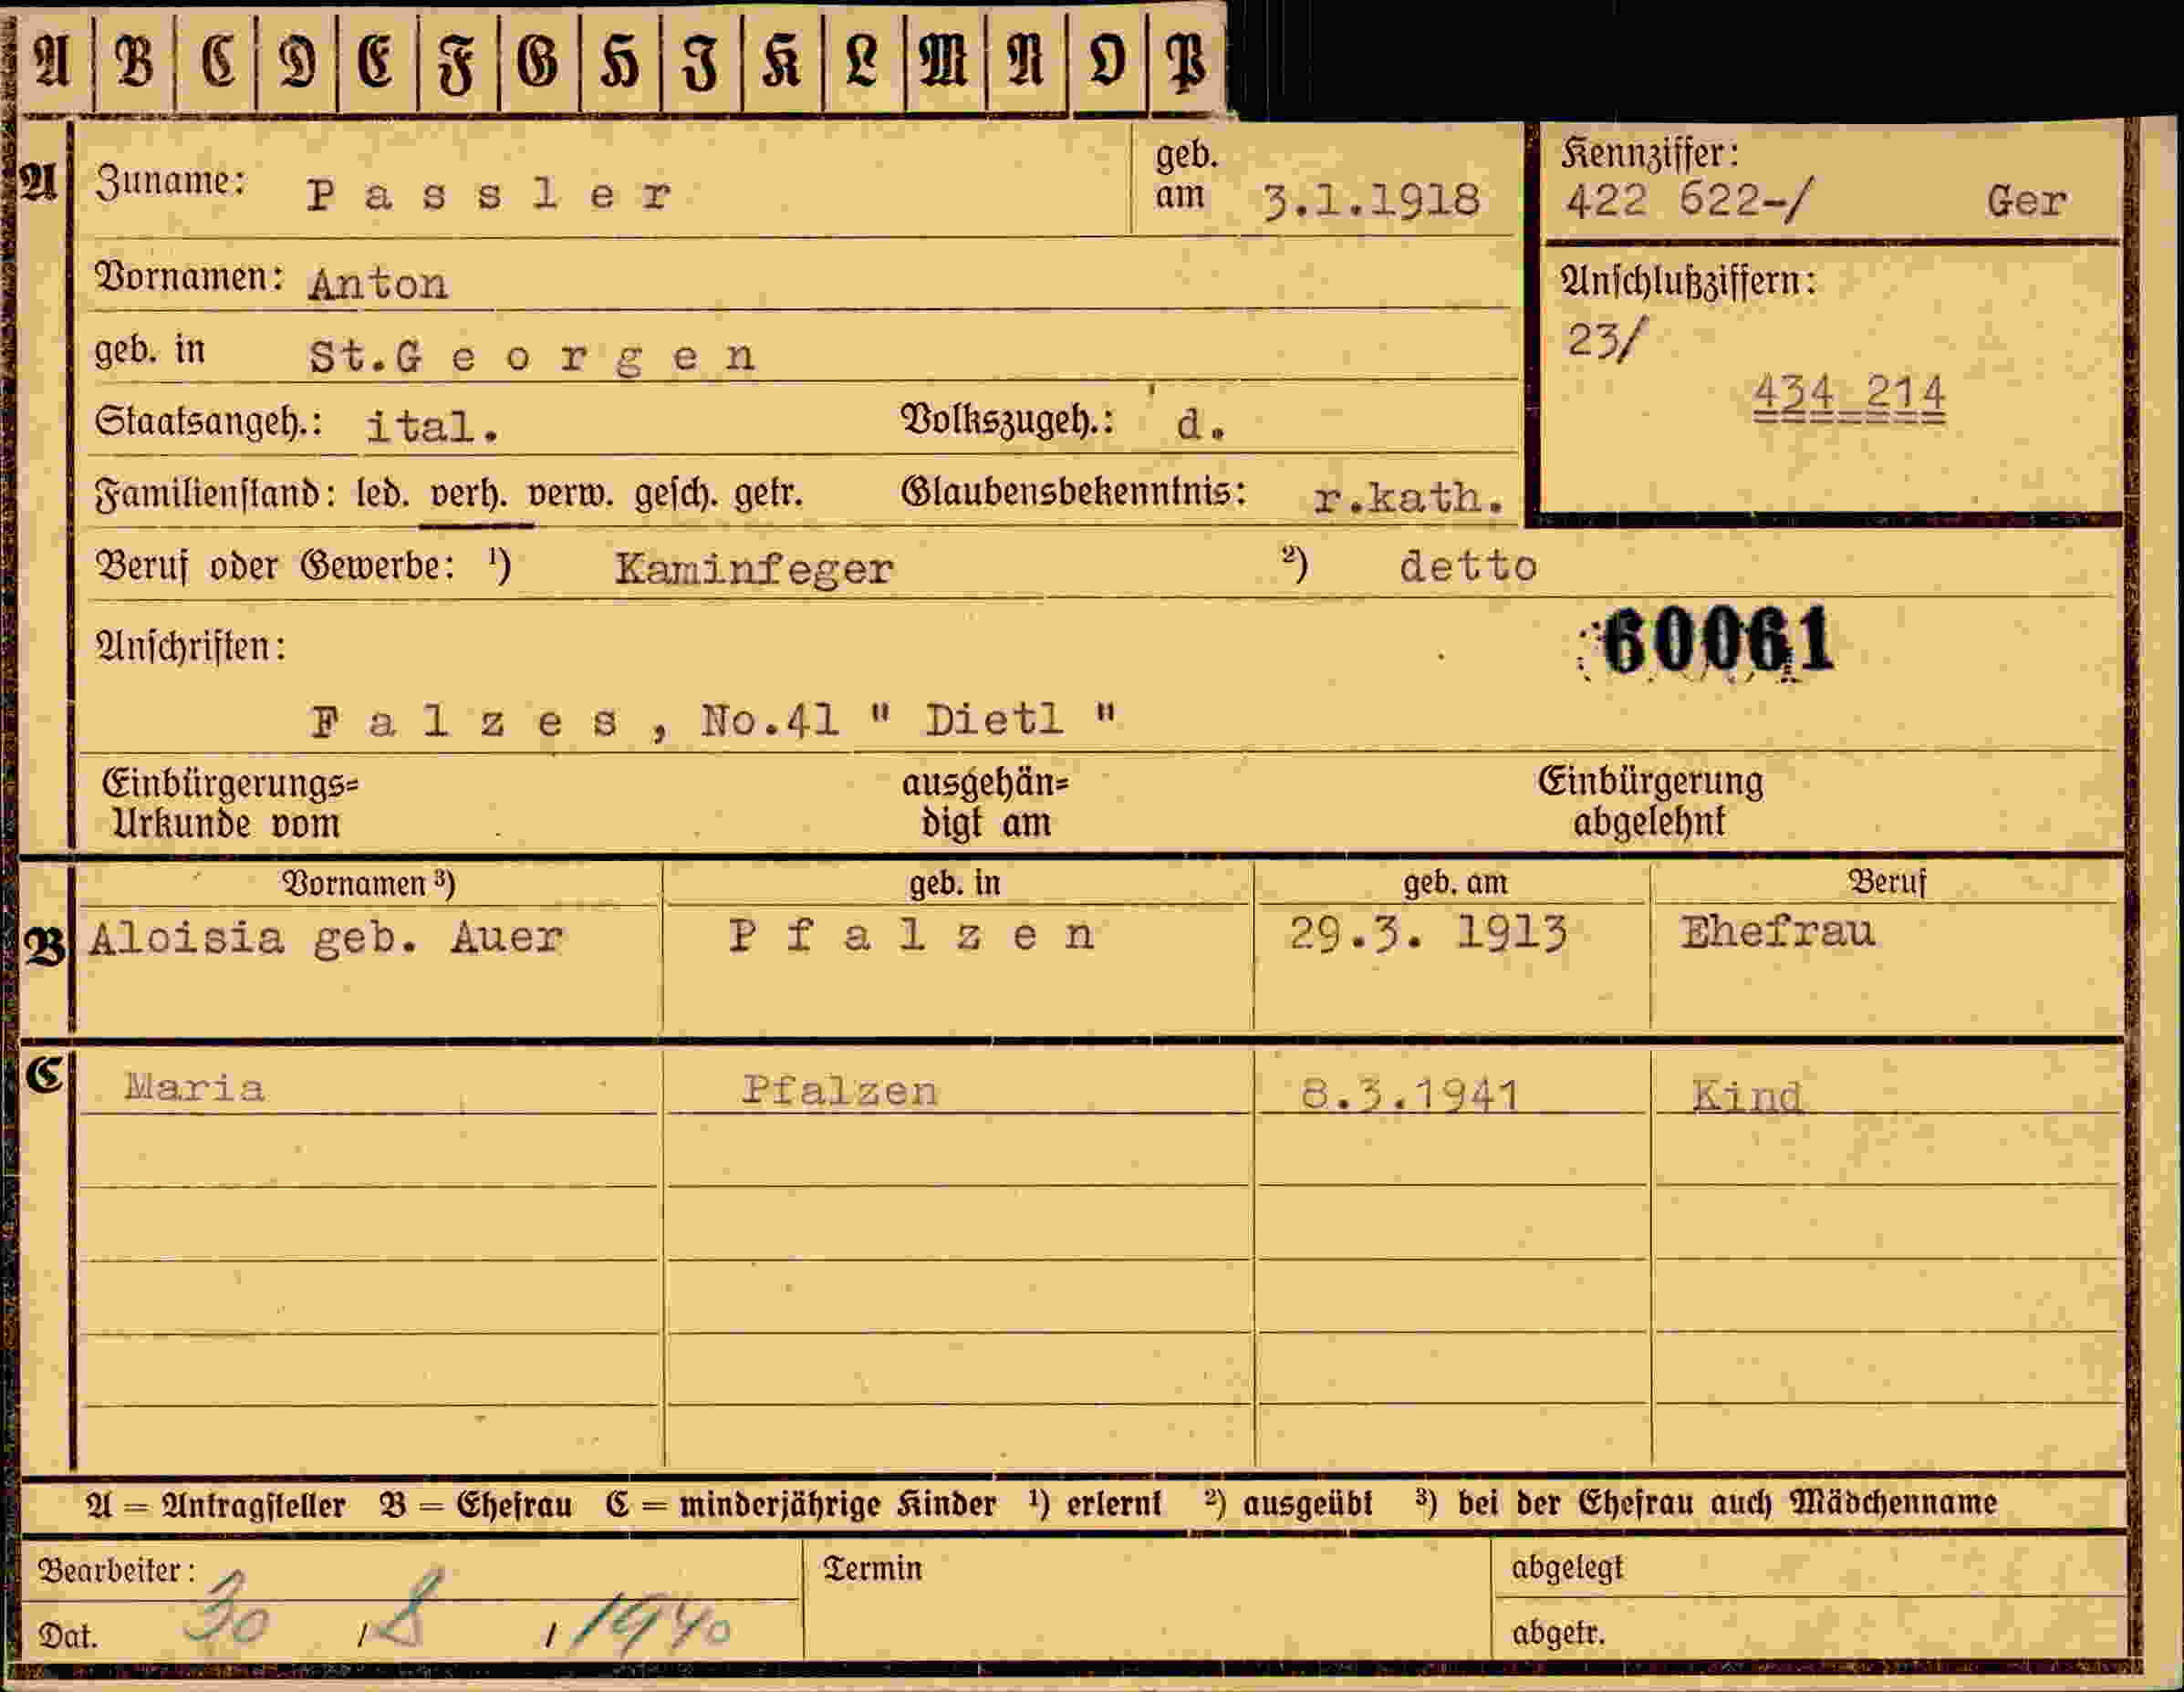 A B C D E F G H I K L M N O P
A Zuname: Passler geb. am 3.1.1918
Kennziffer:
422 622-/ Ger
Vornamen: Anton
Anschlußziffern:
23/
434 214
geb. in St.Georgen
Staatsangeh.: ital. Volkszugeh.: d.
Familienstand: led. verh. verw. gesch. getr. Glaubensbekenntnis: r.kath.
Beruf oder Gewerbe: ¹) Kaminfeger ²) detto
Anschriften:
60061
Falzes, No.41 " Dietl "
Einbürgerungs= ausgehän= Einbürgerung
Urkunde vom digt am abgelehnt
Vornamen ³) geb. in geb. am Beruf
B Aloisia geb. Auer Pfalzen 29.3. 1913 Ehefrau
C Maria Pfalzen 8.3.1941 Kind
A = Antragsteller B = Ehefrau C = minderjährige Kinder ¹) erlernt ²) ausgeübt ³) bei der Ehefrau auch Mädchenname
Bearbeiter: Termin abgelegt
Dat. 30 / 8 / 1940 abgetr.